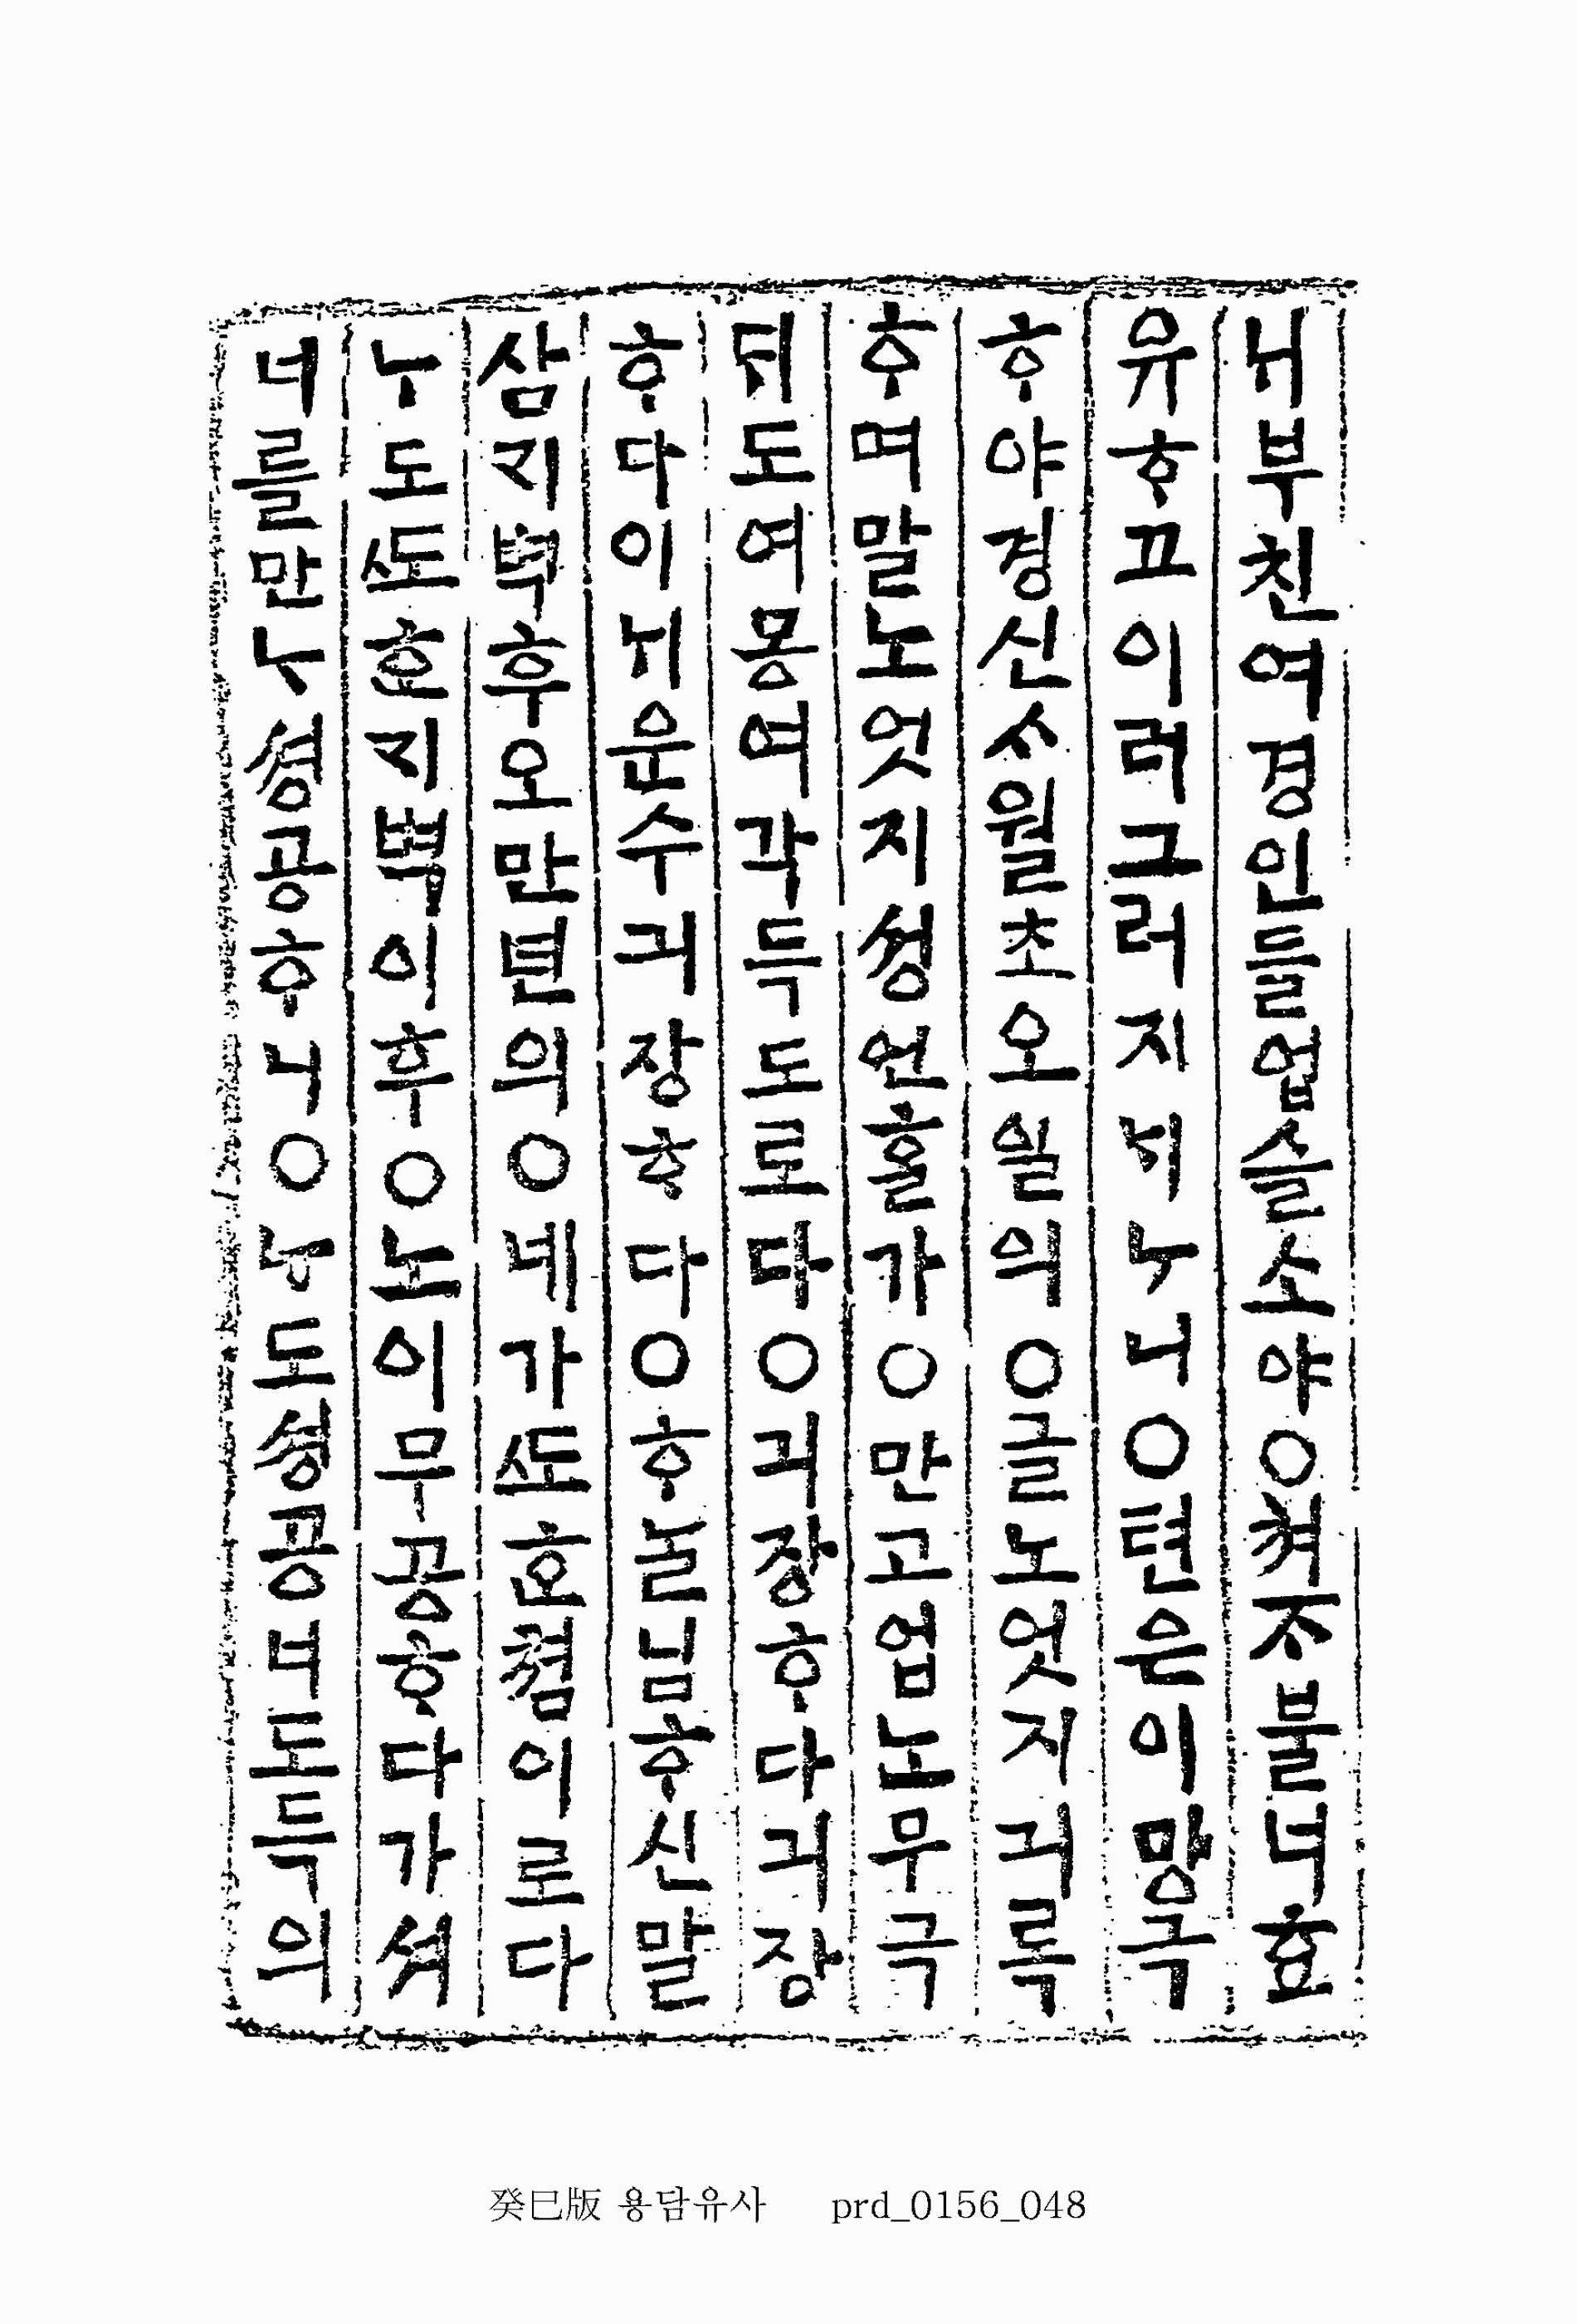 ᄂᆡ부친여경인들업슬소야○쳐ᄌᆞ불너효
유ᄒᆞ고이러그러지ᄂᆡᄂᆞ니○텬은이망극
ᄒᆞ야경신ᄉᆞ월초오일의○글노엇지긔록
ᄒᆞ며말노엇지성언홀가○만고업노무극
ᄃᆡ도여몽여각득도로다○긔장ᄒᆞ다긔장
ᄒᆞ다이ᄂᆡ운수긔장ᄒᆞ다○ᄒᆞ놀님ᄒᆞ신말
삼ᄀᆡ벽후오만년의○네가ᄯᅩᄒᆞᆫ쳠이로다
ᄂᆞ도ᄯᅩᄒᆞᆫᄀᆡ벽이후○노이무공ᄒᆞ다가셔
너를만ᄂᆞ셩공ᄒᆞ니○ᄂᆞ도셩공너도득의
癸巳版 용담유사 prd_0156_048